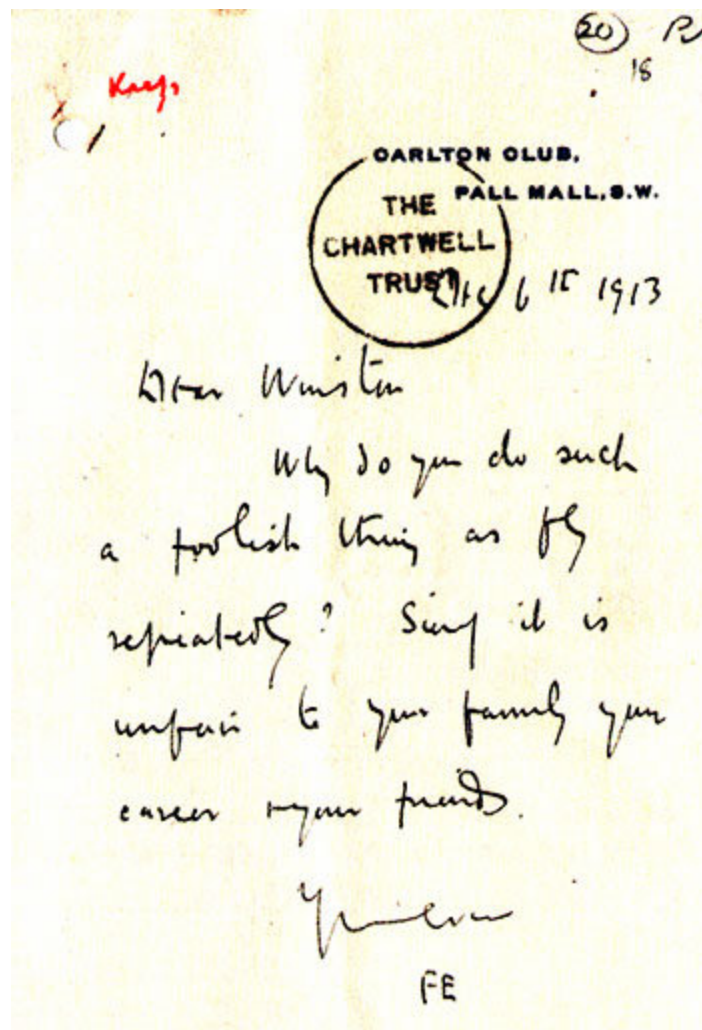 (20)
18
Keep
CARLTON CLUB,
PALL MALL, S.W.
THE
CHARTWELL
TRUST
Dec 6th 1913
Dear Winston
Why do you do such
a foolish thing as fly
repeatedly? Surely it is
unfair to your family your
career & your friends.
Yours ever
FE